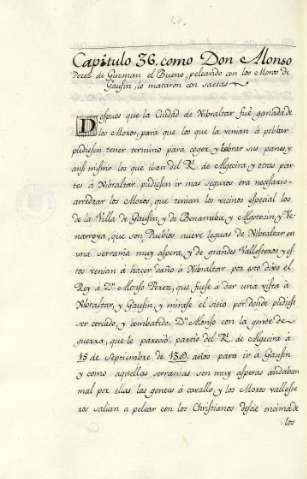 Capitulo 36. como Don Alonso
Perez de Guzman el Bueno, peleando con los Moros de
Gausin, lo mataron con saetas
Despues que la Ciudad de Nibraltar fué ganada de
los Moros, para que los que la venian á poblar
pudiesen tener termino para coger, y labrar sus panes, y
ansi mismo los que iban del R. de Algecira, y otras par-
tes á Nibraltar pudiesen ir mas seguros era necesario
arredrar los Moros, que tenian los vecinos especial los
de la Villa de Gausin, y de Benarraba, y Algatocin, y Be-
narroya, que son Pueblos nueve leguas de Nibraltar en
una serrania muy aspera, y de grandes Vallesteros, y es-
tos venian á hacer daño á Nibraltar, por esto dixo el
Rey á Dn. Alonso Perez, que fuese á dar una vista á
Nibraltar, y Gausin, y mirase el sitio por donde pudiese
ser cercado, y combatido. Dn. Alonso con la gente de
guerra, que le pareció, partió del R. de Algecira á
15 de Septiembre de 1309 años para ir á Gausin,
y como aquellas serranias son muy asperas andaban
mal por ellas las gentes á cavallo, y los Moros valleste-
ros salian á pelear con los Christianos desde encima de
los